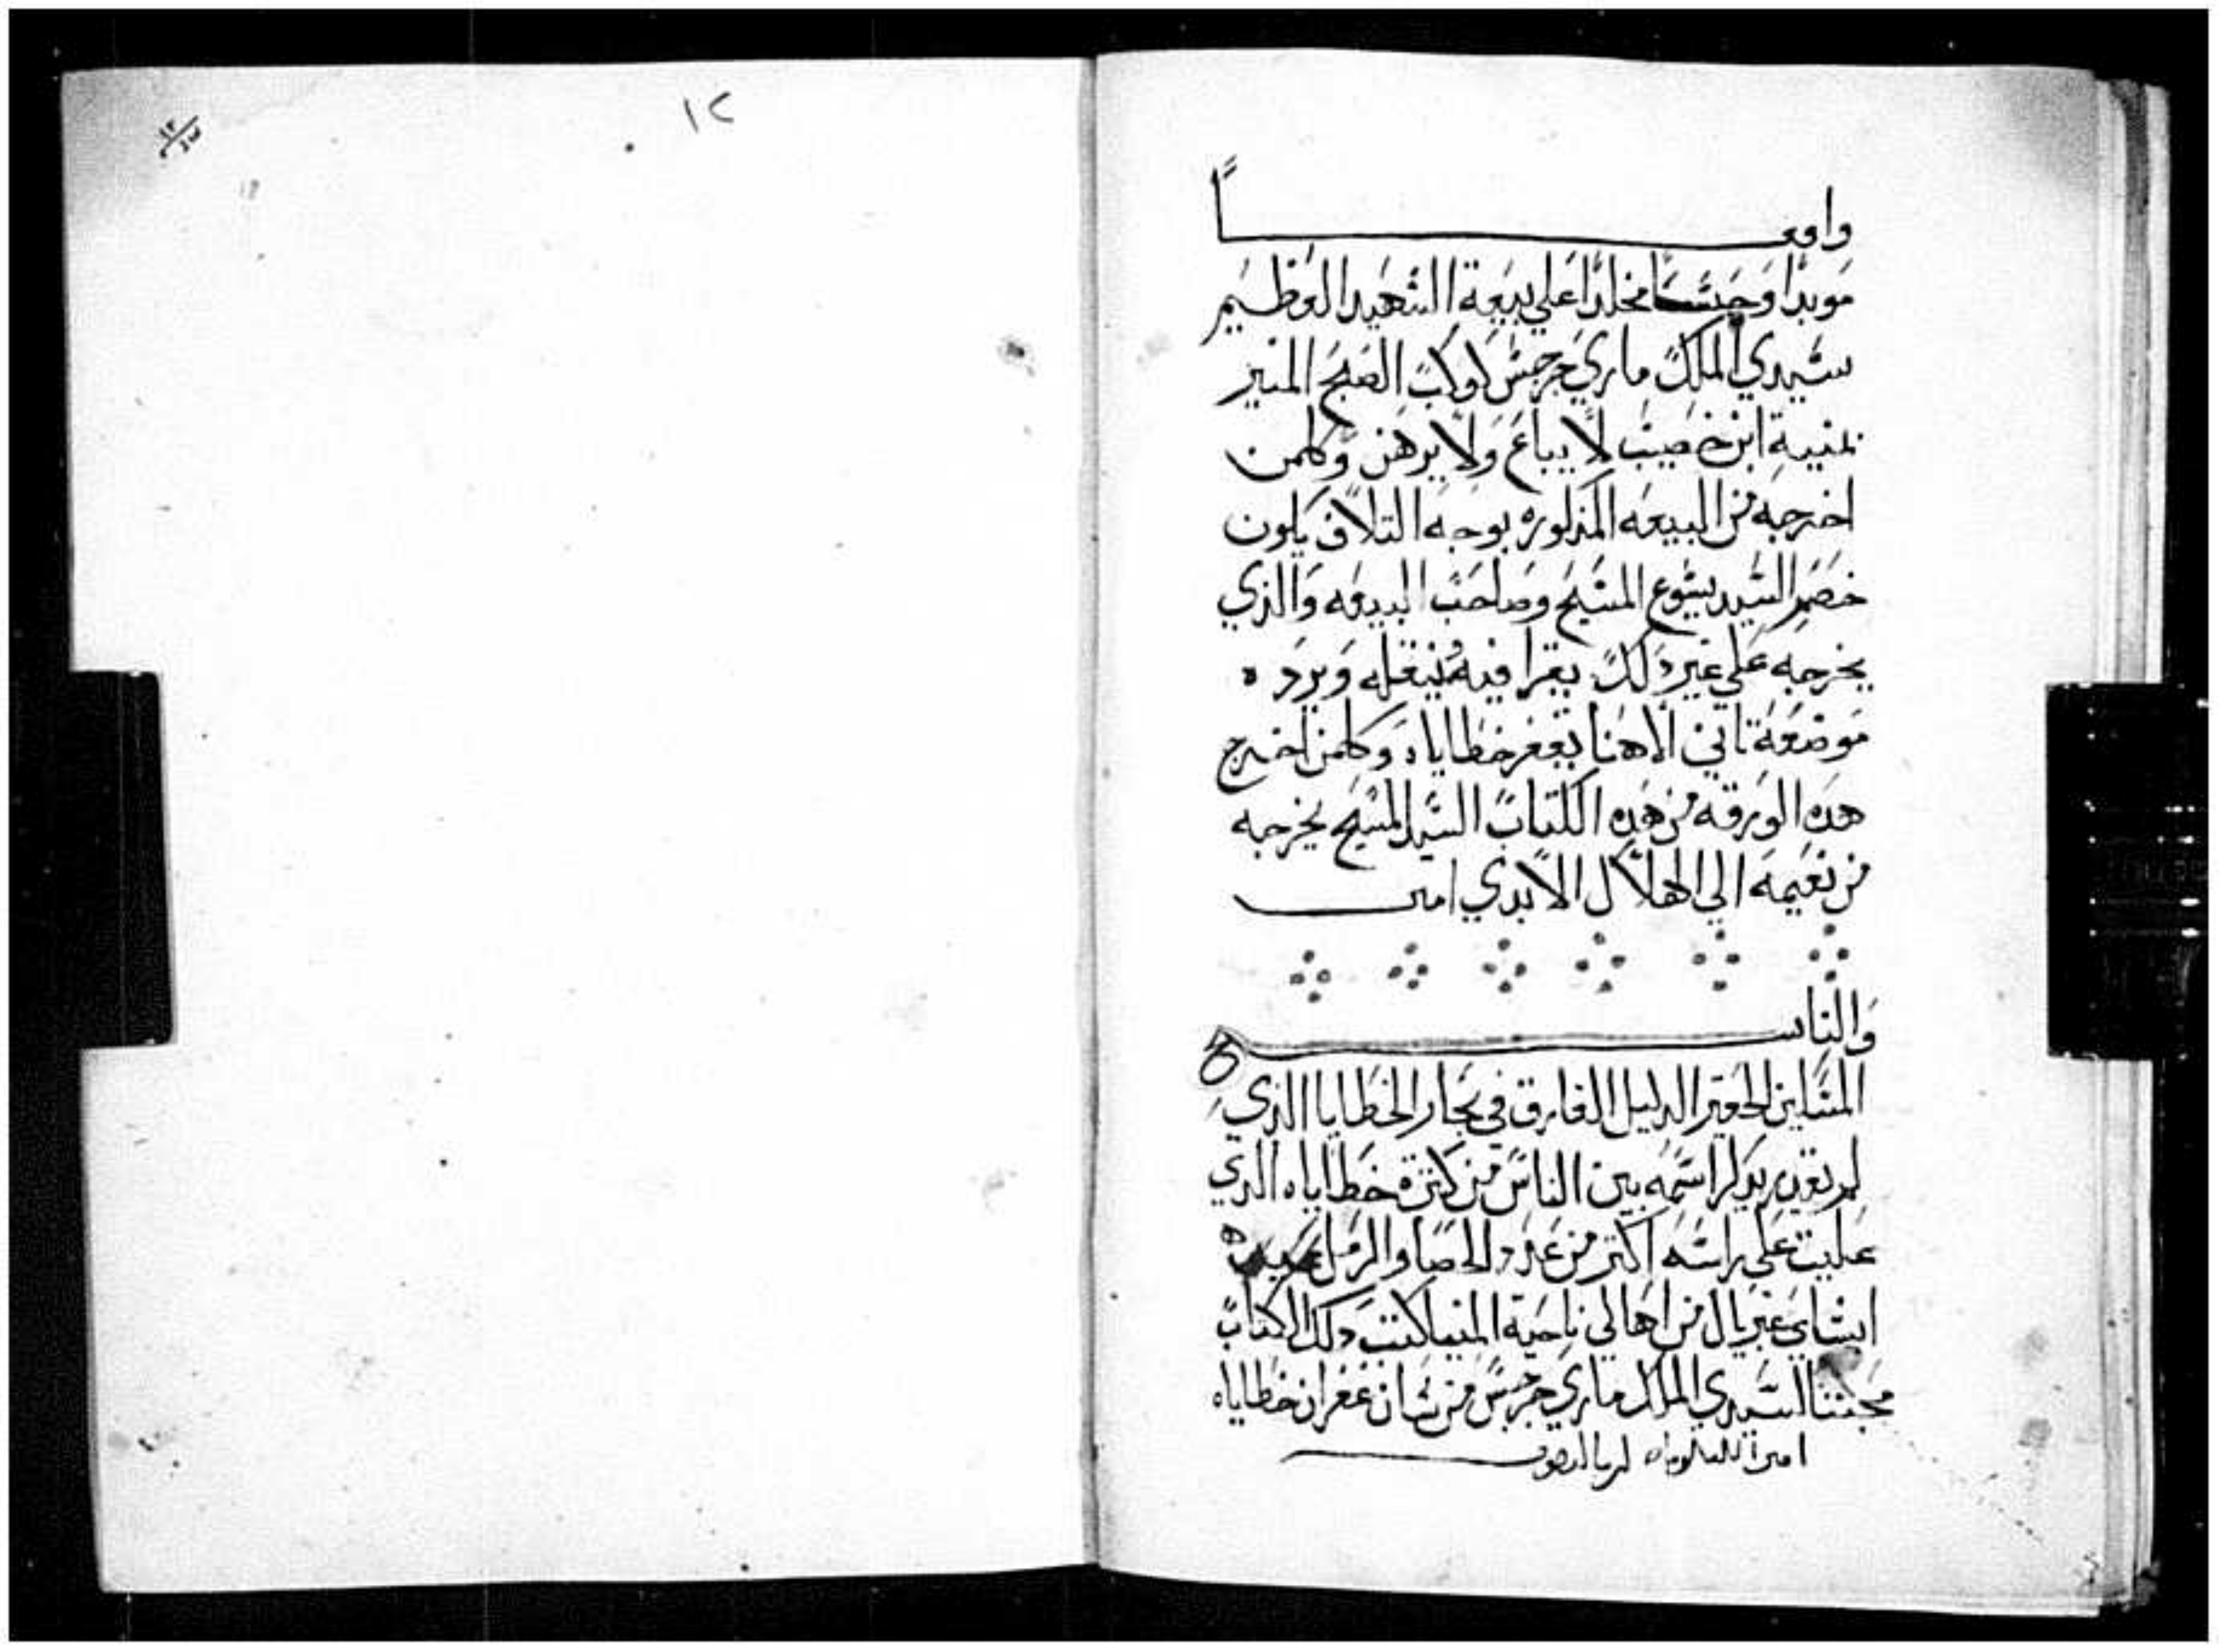 ١٢
واوقفـــــا
موبدا وحبسا مخلدا علي بيعة الشهيد العظيم
سيدي الملك ماري جرجس كوكب الصبح المنير
بمنية ابن خصيب لا يباع ولا يرهن وكلمن
اخرجه من البيعه المذكوره بوجه التلاف يكون
خصمه السيد يسوع المسيح وصاحب البيعه والذي
يخرجه علي غير ذلك يقرا فيه وينقله ويرده
موضعه تاني الاهنا يغفر خطاياه وكلمن اخرج
هده الورقه من هده الكتاب السيد المسيح يخرجه
من نعيمه الي الهلاك الابدي امين
والناسخ
المسكين الحقير الدليل الغارق في بحار الخطايا الذي
لم يقدر يدكر اسمه بين الناس من كترة خطاياه الدي
عليت علي راسه اكتر من عدد الحصا والرمل
ابشاي غبريال من اهالي ناحية المنيا كتب دلك الكتاب
السيدي الملك ماري جرجس من شان غفران خطاياه
امين